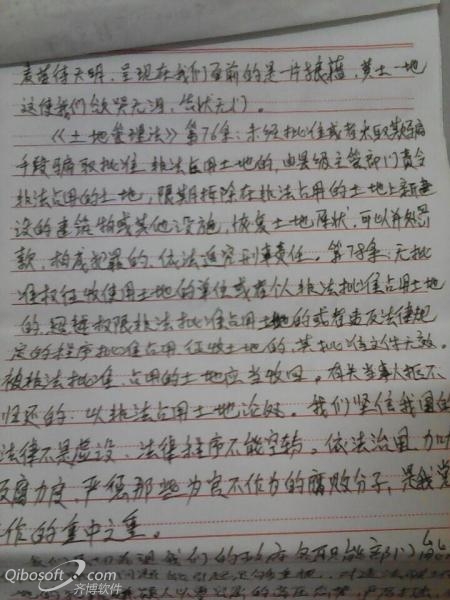 麦苗待天明，呈现在我们面前的是一片狼藉，黄土一地
这使我们欲哭无泪，告状无门。
《土地管理法》第76条：未经批准或者采取欺骗
手段骗取批准，非法占用土地的，由县级主管部门责令
非法占用的土地，限期拆除在非法占用的土地上新建
设的建筑物或其他设施，恢复土地原状，可以并处罚
款，构成犯罪的，依法追究刑事责任。第78条：无批
准权征收使用土地的单位或者个人非法批准占用土地
的，超越权限非法批准占用土地的或者违反法律规
定的程序批准占用、征收土地的，其批准文件无效。
被非法批准、占用的土地应当收回，有关当事人拒不
归还的，以非法占用土地论处。我们坚信我国的
法律不是虚设，法律程序不能空转。依法治国，加
反腐力度，严惩那些为官不作为的腐败分子，是我党
工作的重中之重。
我们的政府各职能部门能
Qibosoft.com
齐博软件